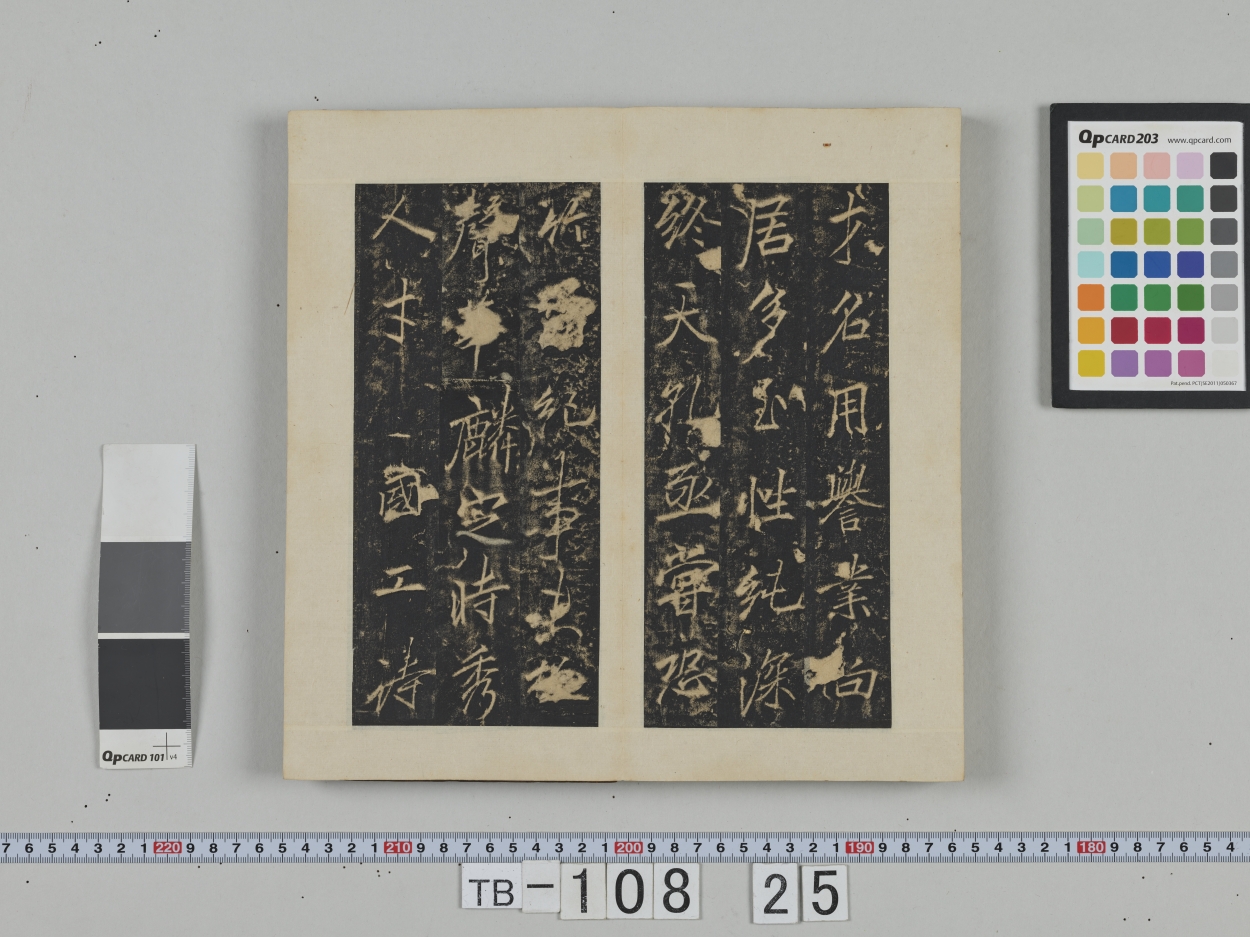 才名用譽業尚
居多至性純深
終天孔亟嘗恐
竹紀事未極
聲華麟定時秀
人才一國工詩
QpCARD 203 www.qpcard.com
Pat.pend. PCT/SE2011/050367
QpCARD 101 v4
7 6 5 4 3 2 1 220 9 8 7 6 5 4 3 2 1 210 9 8 7 6 5 4 3 2 1 200 9 8 7 6 5 4 3 2 1 190 9 8 7 6 5 4 3 2 1 180 9 8 7 6 5 4
TB-108 25